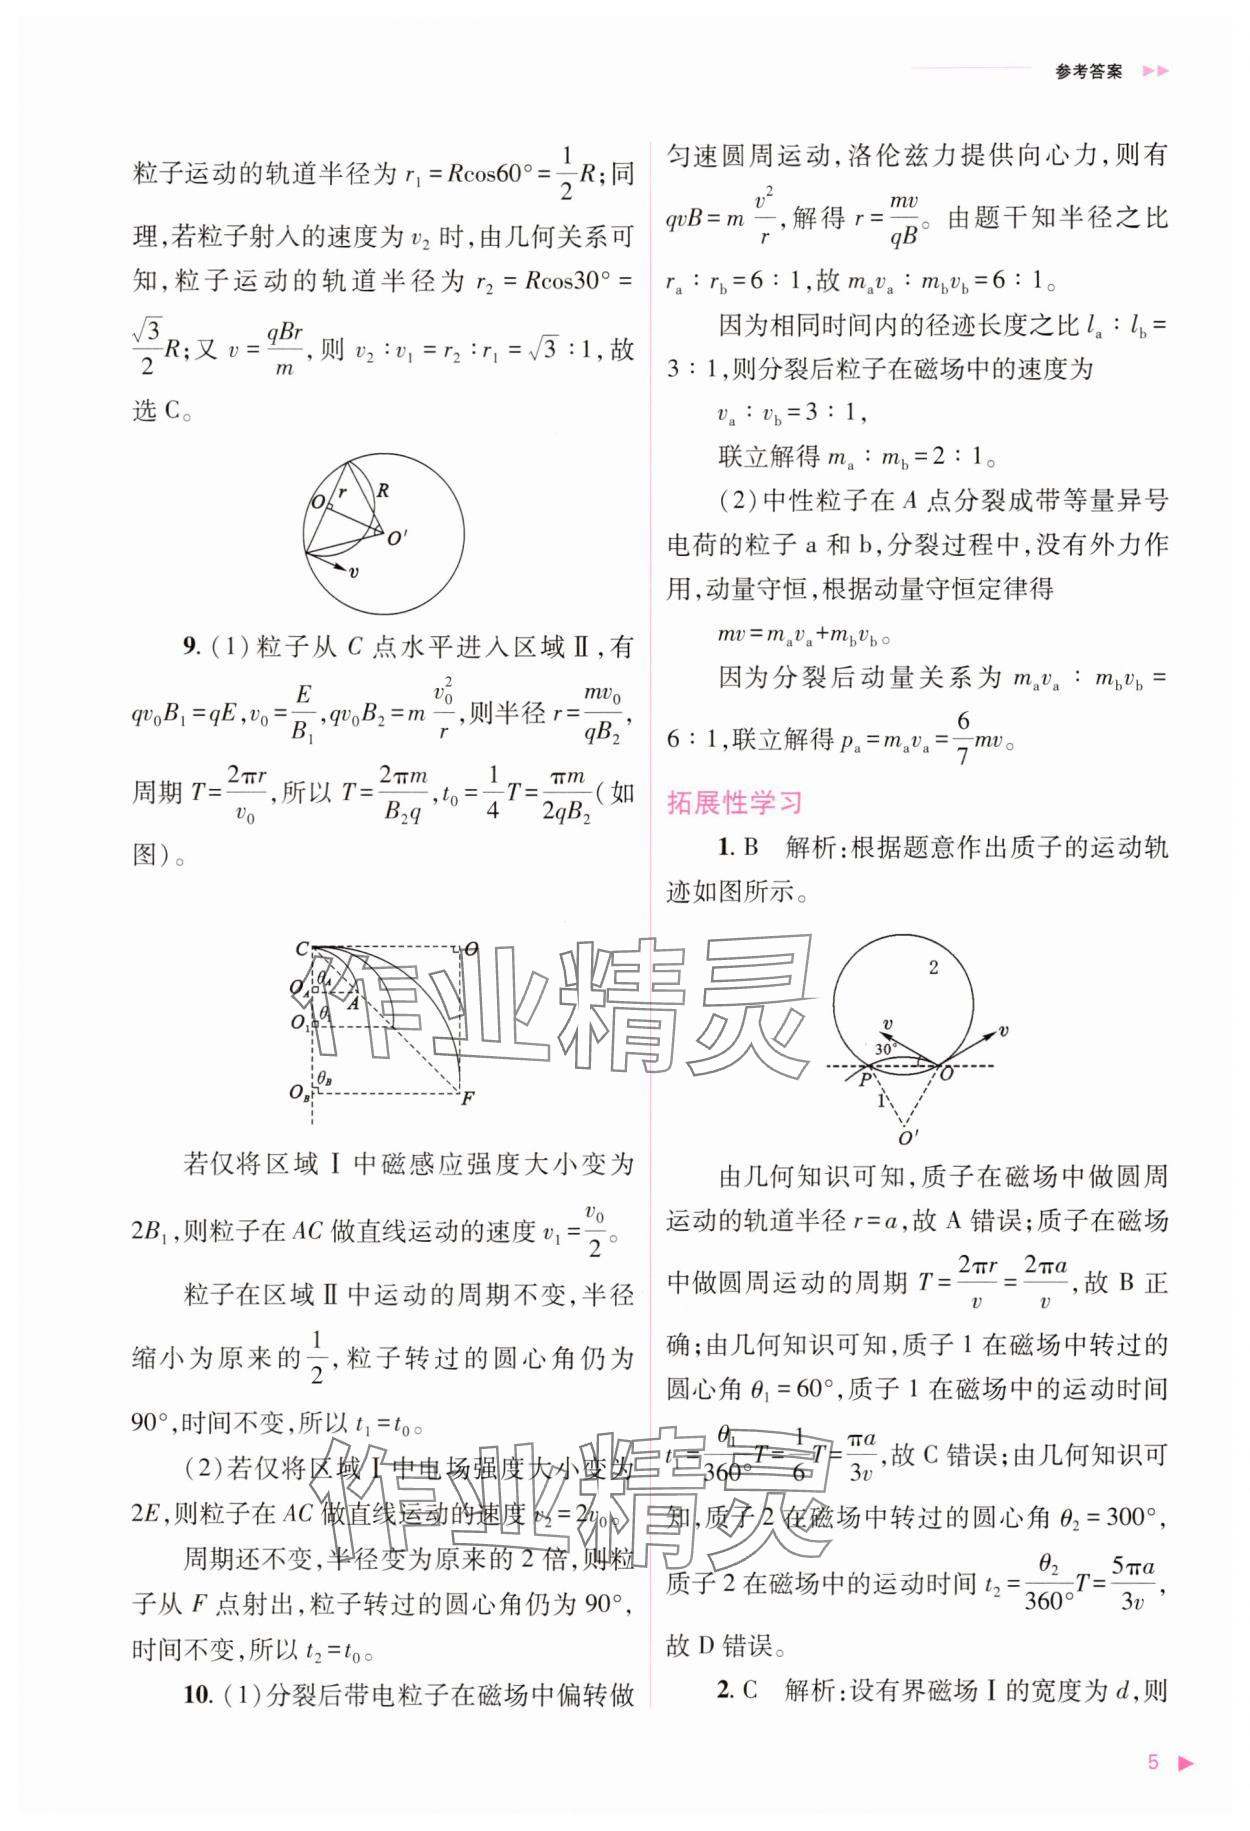 参考答案
粒子运动的轨道半径为 r₁ = Rcos60° = 1/2 R;同
理,若粒子射入的速度为 v₂ 时,由几何关系可
知,粒子运动的轨道半径为 r₂ = Rcos30° =
√3/2 R;又 v = qBr/m,则 v₂∶v₁ = r₂∶r₁ = √3∶1,故
选 C。
O r R
O′
v
9. (1)粒子从 C 点水平进入区域Ⅱ,有
qv₀B₁ = qE,v₀ = E/B₁,qv₀B₂ = m v₀²/r,则半径 r = mv₀/qB₂,
周期 T = 2πr/v₀,所以 T = 2πm/B₂q,t₀ = 1/4 T = πm/2qB₂(如
图)。
C O
O_A θ_A A
O₁ θ₁
O_B θ_B F
若仅将区域Ⅰ中磁感应强度大小变为
2B₁,则粒子在 AC 做直线运动的速度 v₁ = v₀/2。
粒子在区域Ⅱ中运动的周期不变,半径
缩小为原来的 1/2,粒子转过的圆心角仍为
90°,时间不变,所以 t₁ = t₀。
(2)若仅将区域Ⅰ中电场强度大小变为
2E,则粒子在 AC 做直线运动的速度 v₂ = 2v₀。
周期还不变,半径变为原来的 2 倍,则粒
子从 F 点射出,粒子转过的圆心角仍为 90°,
时间不变,所以 t₂ = t₀。
10. (1)分裂后带电粒子在磁场中偏转做
匀速圆周运动,洛伦兹力提供向心力,则有
qvB = m v²/r,解得 r = mv/qB。由题干知半径之比
r_a∶r_b = 6∶1,故 m_a v_a∶m_b v_b = 6∶1。
因为相同时间内的径迹长度之比 l_a∶l_b =
3∶1,则分裂后粒子在磁场中的速度为
v_a∶v_b = 3∶1,
联立解得 m_a∶m_b = 2∶1。
(2)中性粒子在 A 点分裂成带等量异号
电荷的粒子 a 和 b,分裂过程中,没有外力作
用,动量守恒,根据动量守恒定律得
mv = m_a v_a + m_b v_b。
因为分裂后动量关系为 m_a v_a∶m_b v_b =
6∶1,联立解得 p_a = m_a v_a = 6/7 mv。
拓展性学习
1. B 解析:根据题意作出质子的运动轨
迹如图所示。
2
v v
30°
P O
1
O′
由几何知识可知,质子在磁场中做圆周
运动的轨道半径 r = a,故 A 错误;质子在磁场
中做圆周运动的周期 T = 2πr/v = 2πa/v,故 B 正
确;由几何知识可知,质子 1 在磁场中转过的
圆心角 θ₁ = 60°,质子 1 在磁场中的运动时间
t₁ = θ₁/360° T = 1/6 T = πa/3v,故 C 错误;由几何知识可
知,质子 2 在磁场中转过的圆心角 θ₂ = 300°,
质子 2 在磁场中的运动时间 t₂ = θ₂/360° T = 5πa/3v,
故 D 错误。
2. C 解析:设有界磁场Ⅰ的宽度为 d,则
5
作业精灵
作业精灵